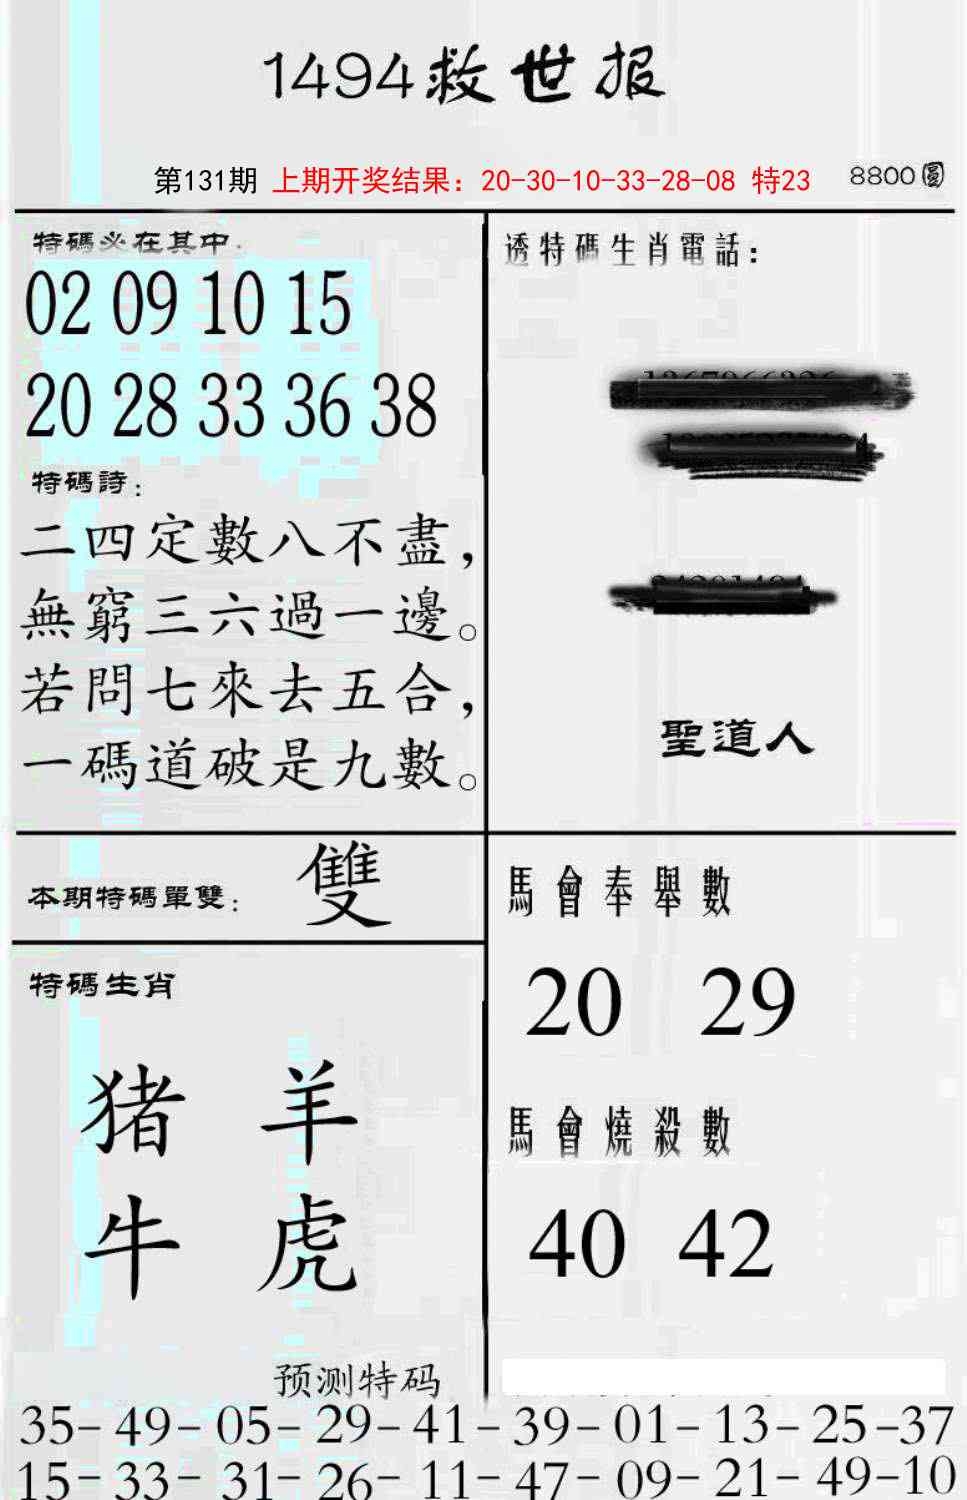 1494救世报
第131期 上期开奖结果：20-30-10-33-28-08 特23
8800圓
特碼必在其中：
02 09 10 15
20 28 33 36 38
特碼詩：
二四定數八不盡，
無窮三六過一邊。
若問七來去五合，
一碼道破是九數。
透特碼生肖電話：
聖道人
本期特碼單雙： 雙
特碼生肖
猪 羊
牛 虎
馬會奉舉數
20 29
馬會燒殺數
40 42
预测特码
35-49-05-29-41-39-01-13-25-37
15-33-31-26-11-47-09-21-49-10